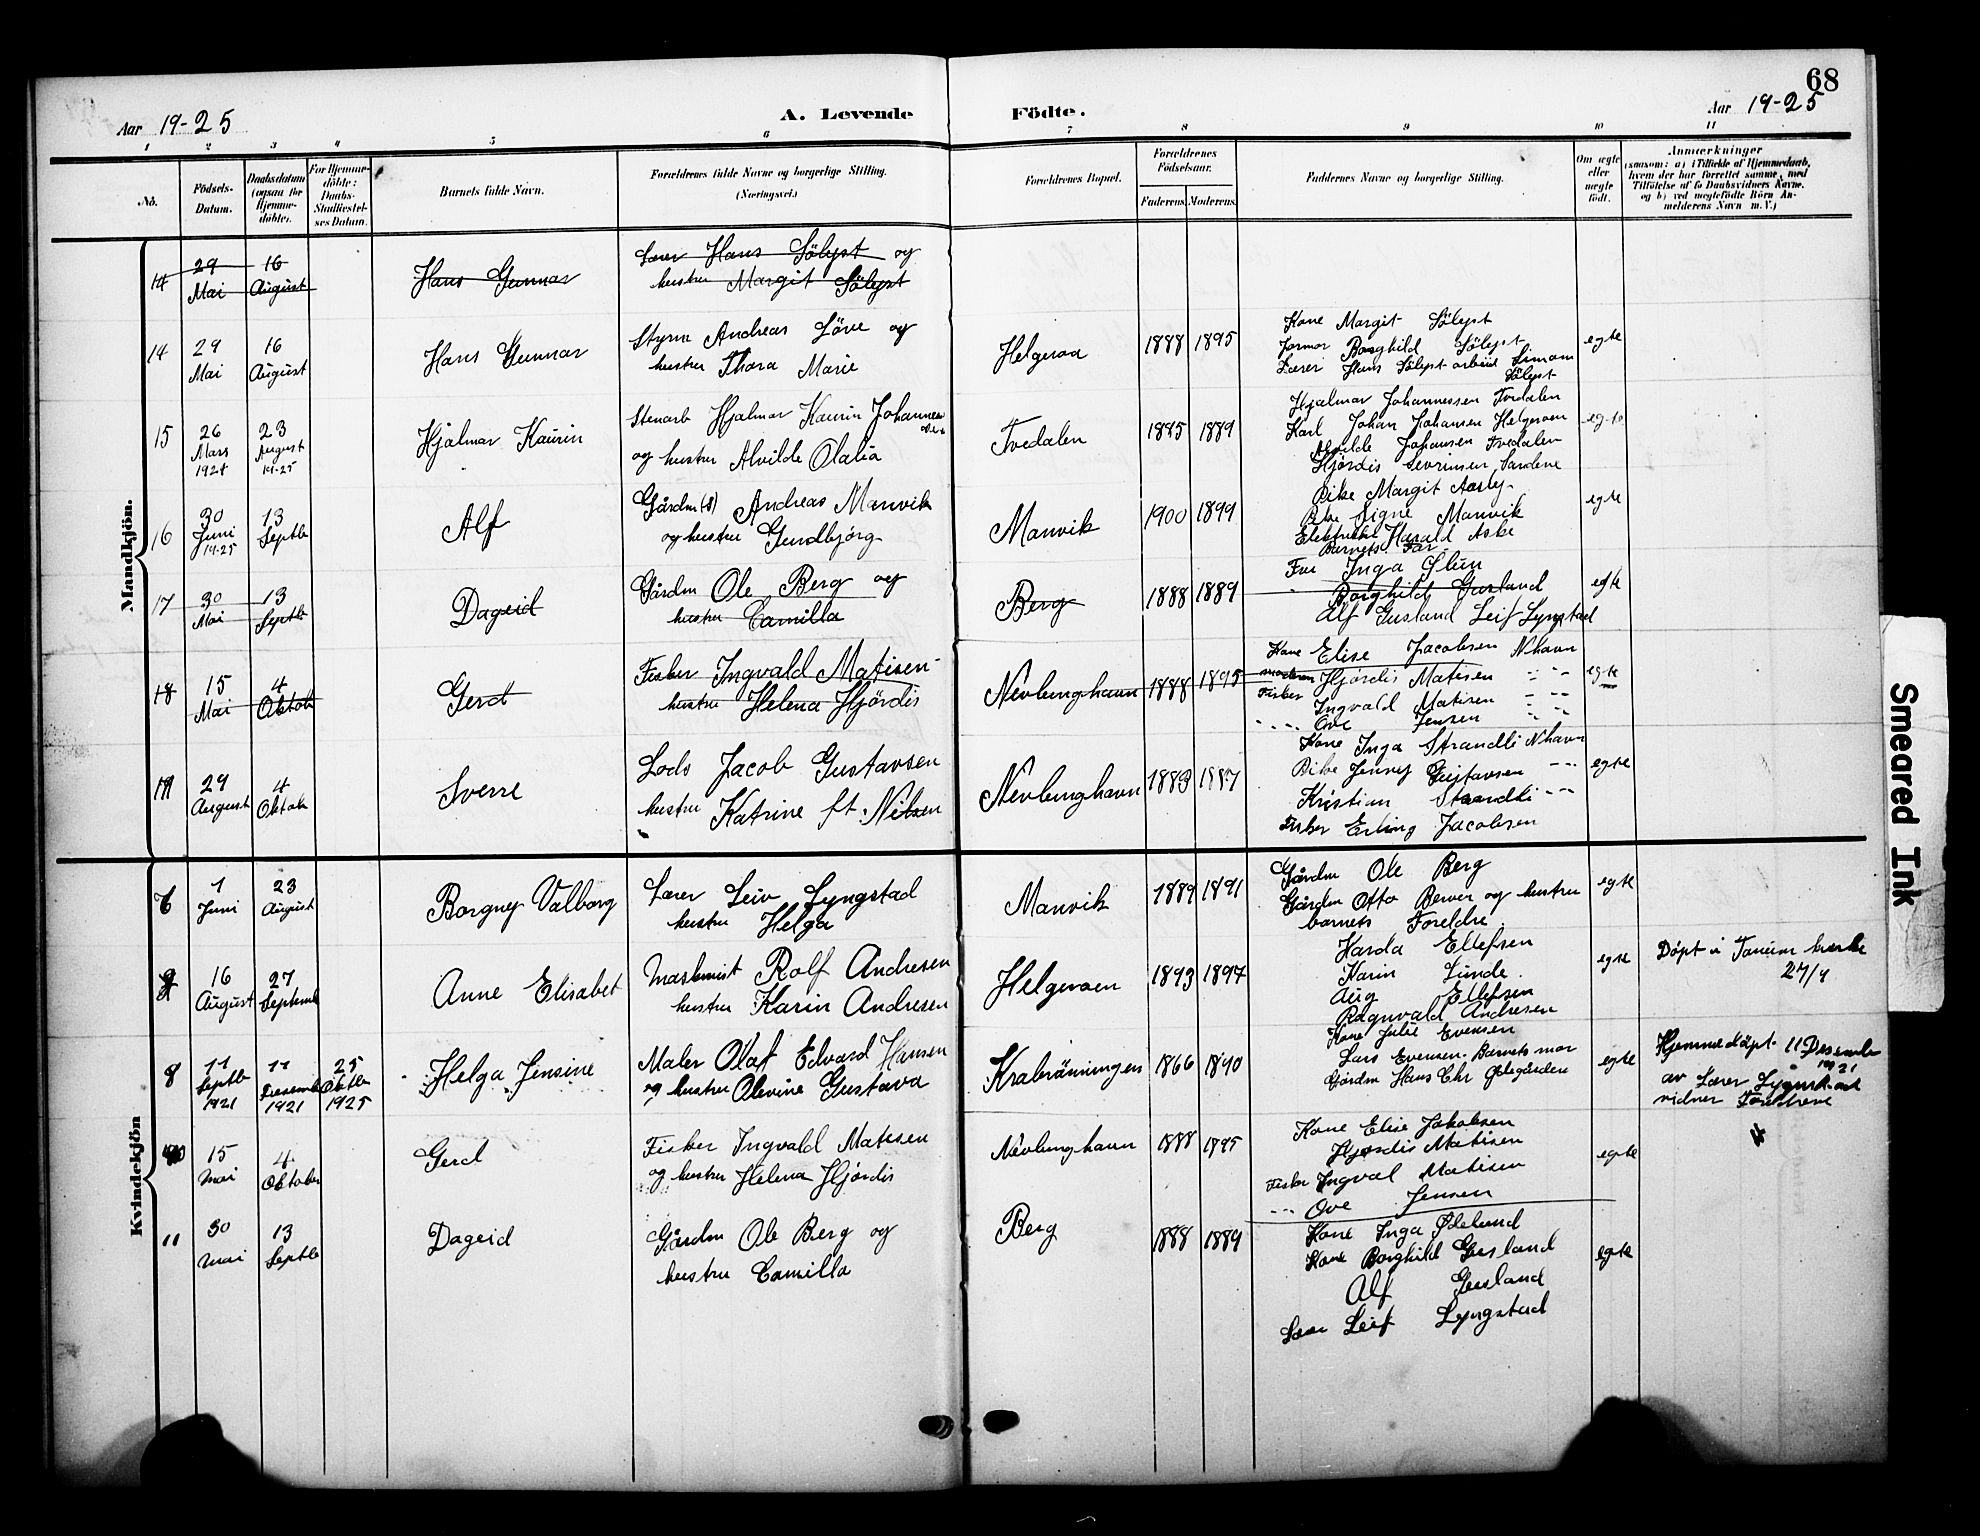 68
Aar 19-25
A. Levende Födte.
Aar 19-25
1 2 3 4 5 6 7 8 9 10 11
No.
Födsels-Datum.
Daabsdatum (ogsaa for Hjemme-döbte).
For Hjemme-döbte: Daabs-Stadfæstel-ses Datum.
Barnets fulde Navn.
Forældrenes fulde Navne og borgerlige Stilling. (Næringsvei.)
Forældrenes Bopæl.
Forældrenes Födselsaar.
Faderens. Moderens.
Faddernes Navne og borgerlige Stilling.
Om ægte eller uægte födt.
Anmærkninger
(saasom: a) i Tilfælde af Hjemmedaab, hvem der har forrettet samme, med Tilföielse af to Daabsvidners Navne, og b) ved uægtefödte Börn Anmelderens Navn m. V.)
Mandkjön.
14
29 Mai
16 August
Hans Gunnar
Lærer Hans Sölyst og
hustru Margit Sölyst
14
29 Mai
16 August
Hans Gunnar
Styrm Andreas Löve og
hustru Thora Marie
Helgeroa
1888 1895
Kone Margit Sölyst
farmor Borghild Sölyst
Lærer Hans Sölyst arbeid Simon
Sölyst
egte
15
26 Mars
23 August 19-25
Hjalmar Kaurin
Stenarb Hjalmar Kaurin Johannes
og hustru Alvilde Olalia
Tvedalen
1885 1889
Hjalmar Johannessen Tvedalen
Karl Johan Johansen Helgeroen
Alvilde Johansen Tvedalen
Hjördis Sevrinsen Sandene
egte
16
30 Juni 19-25
13 Septb
Alf
Gårdm (s) Andreas Manvik
og hustru Gundbjörg
Manvik
1900 1899
Pike Margit Aasly
Pike Signe Manvik
Harald Aske
Barnets Far
egte
17
30 Mai
13 Septb
Dageid
Gårdm Ole Berg og
hustru Camilla
Berg
1888 1889
Fru Inga
Borghild Gusland
Alf Gusland Leif Lyngstad
egte
18
15 Mai
4 Oktob
Gerd
Fisker Ingvald Matisen
hustru Helena Hjördis
Nevlunghavn
1888 1895
Kone Elise Jacobsen Nhavn
Hjördis Matisen
Fisker Ingvald Matisen
Ove Jensen
egte
29 August
4 Oktob
Sverre
Lods Jacob Gustavsen
hustru Katrine ft. Nilsen
Nevlunghavn
1883 1887
Kone Inga Strandli Nhavn
Pike Jenny Gustavsen
Kristian Strandli
Fisker Erling Jacobsen
egte
Kvindekjön
6
1 Juni
23 August
Borgny Valborg
Lærer Leiv Lyngstad
hustru Helga
Manvik
1889 1891
Gårdm Ole Berg
Gårdm Otto Berver og hustru
barnets Foreldre
egte
16 August
27 Septemb
Anne Elisabet
Maskinist Rolf Andresen
hustru Karin Andresen
Helgeroen
1893 1897
Harda Ellefsen
Karin Linde
Aug Ellefsen
Ragnvald Andresen
egte
Döpt i Tanum kirke
27/9
8
11 Septb 1921
11 Desemb 1921
25 Oktb 1925
Helga Jensine
Maler Olaf Edvard Hansen
og hustru Olevine Gustava
Krabrönningen
1866 1890
Kone Julie Evensen
Lars Evensen. Barnets mor
Gårdm Hans Chr Östegården
egte
Hjemmedöpt 11 Desemb
1921
av Lærer
vidner Foreldrene
15 Mai
4 Oktober
Gerd
Fisker Ingvald Matisen
og hustru Helena Hjördis
Nevlunghavn
1888 1895
Kone Elise Jakobsen
Hjördis Matisen
Fisker Ingval Matisen
Ove Jensen
egte
11
30 Mai
13 Septb
Dageid
Gårdm Ole Berg og
hustru Camilla
Berg
1888 1889
Kone Inga
Kone Borghild Gusland
Alf Gusland
Lærer Leif Lyngstad
egte
Smeared Ink